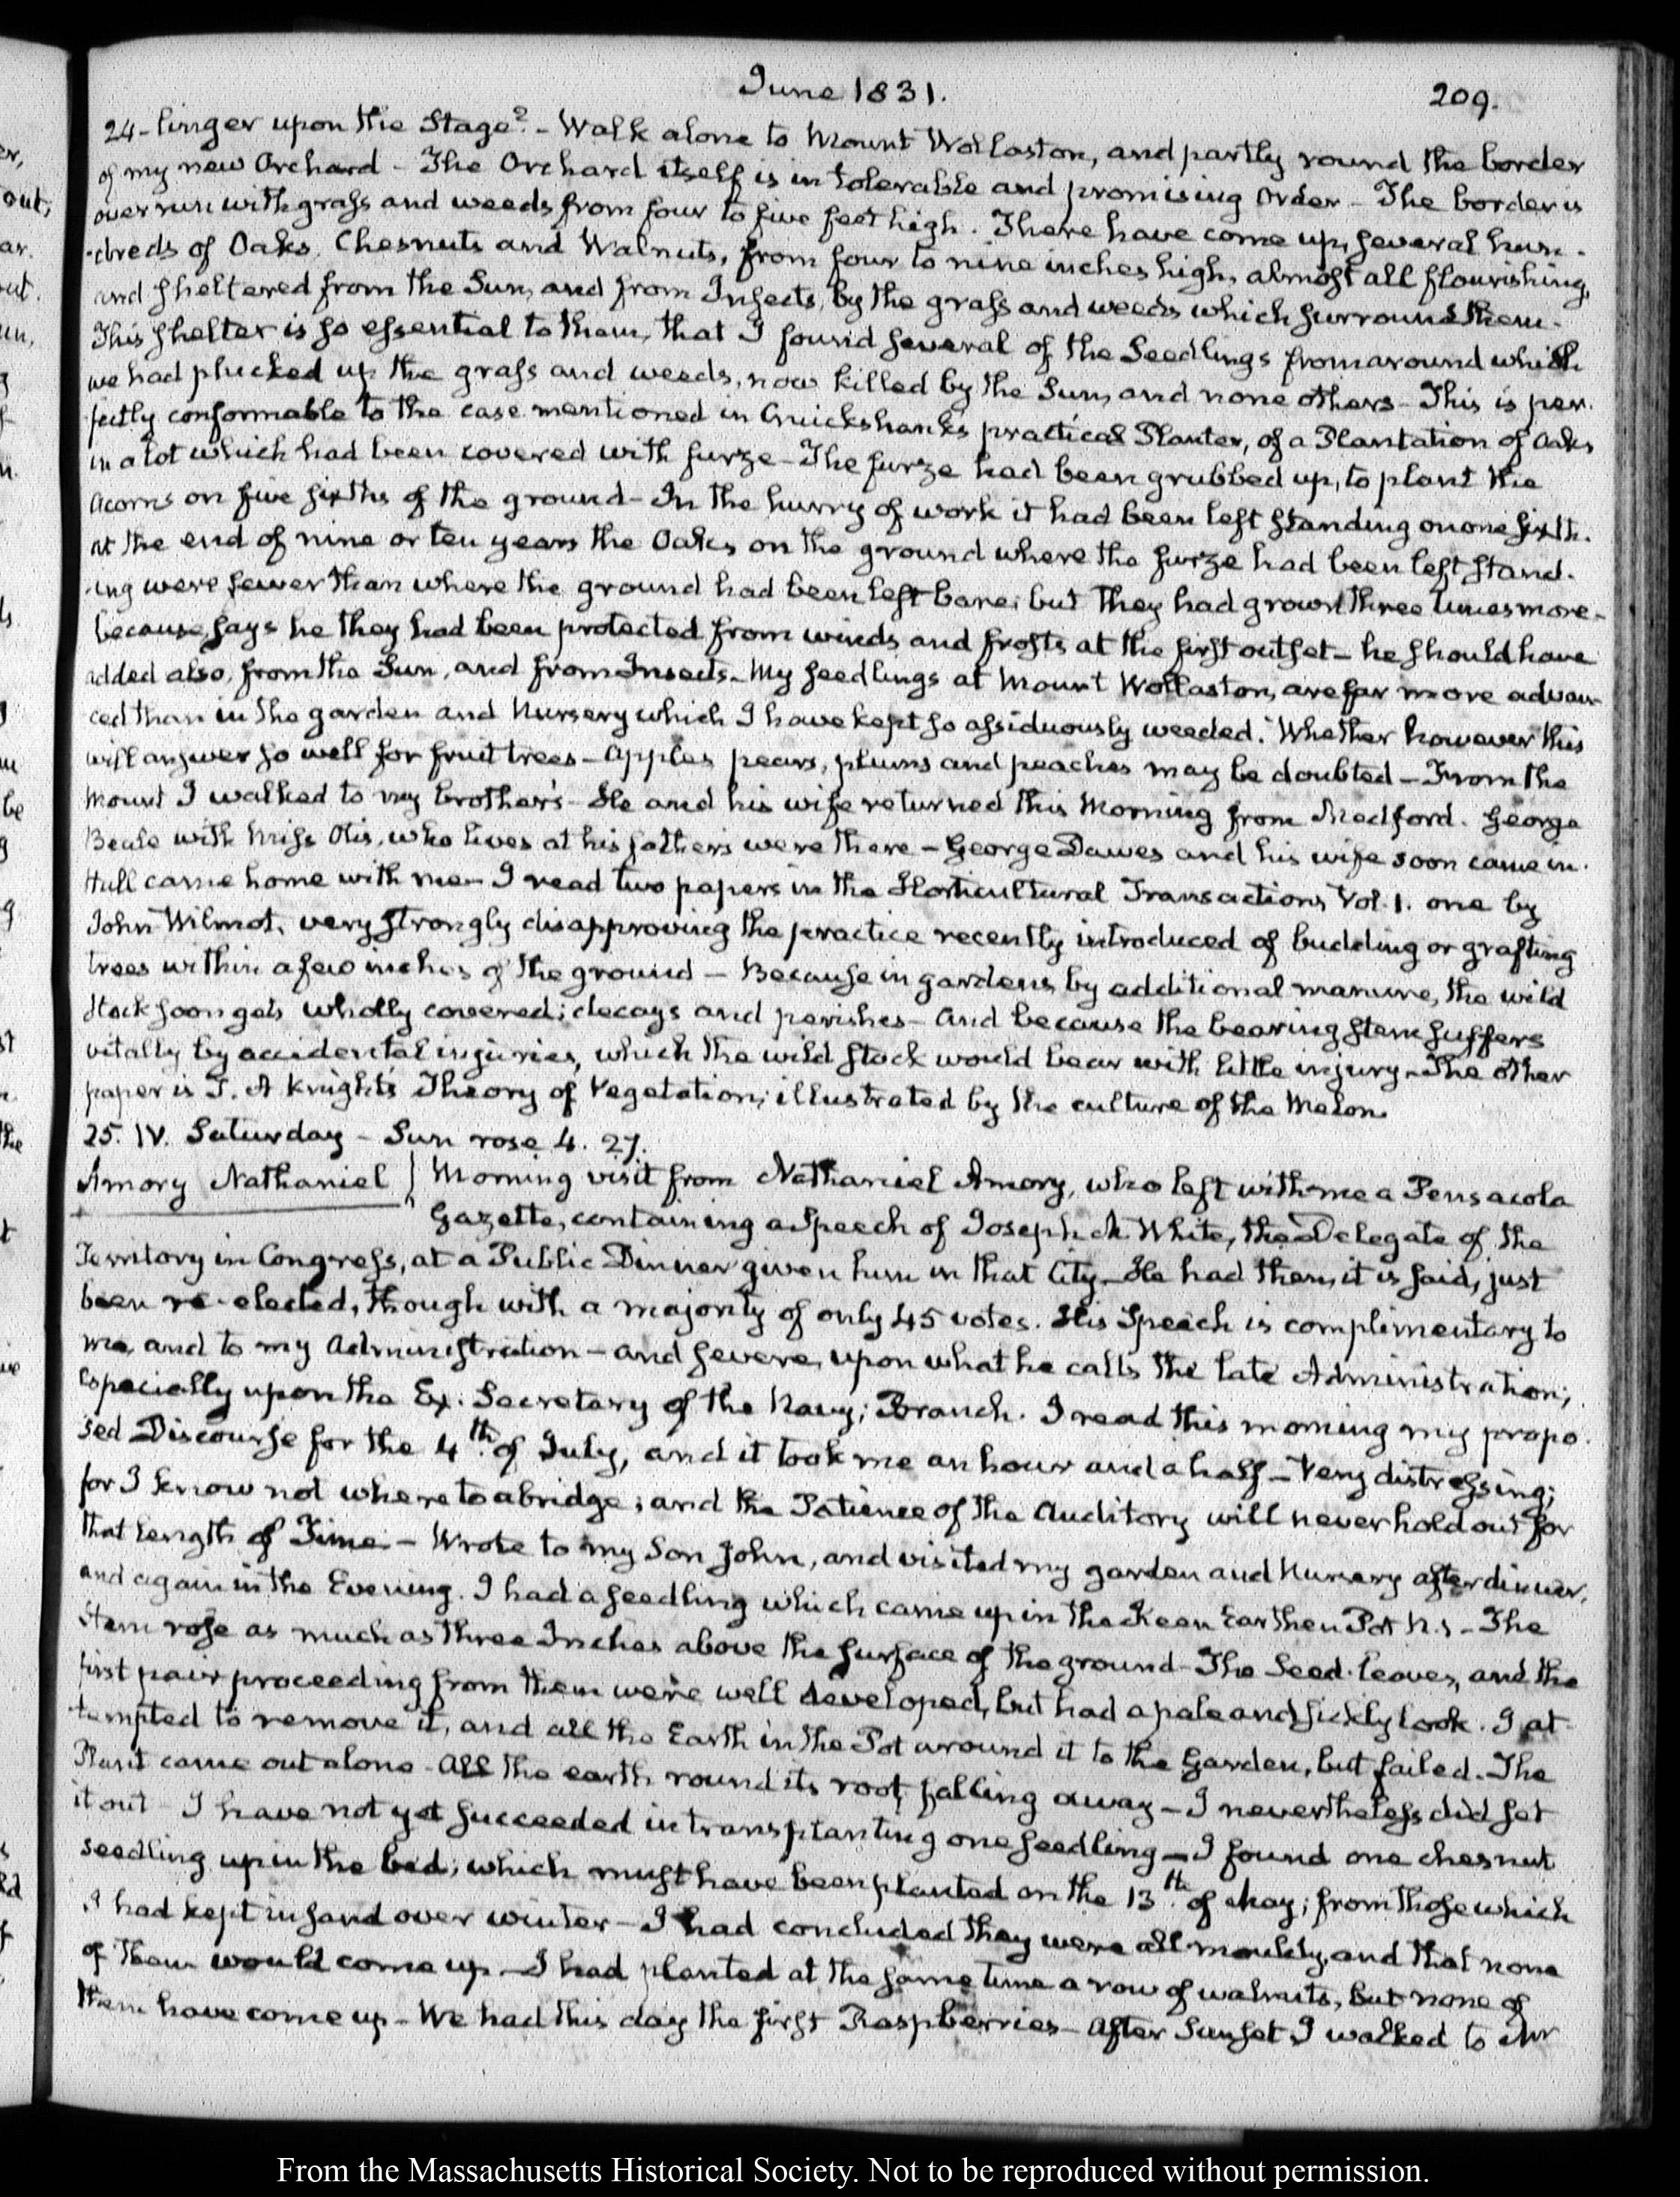 June 1831. 209.
24- linger upon the Stage? - Walk alone to Mount Wollaston, and partly round the border
of my new Orchard - The Orchard itself is in tolerable and promising order - The border is
overrun with grass and weeds from four to five feet high. There have come up, several hun-
-dreds of Oaks, Chesnuts and Walnuts, from four to nine inches high, almost all flourishing,
and sheltered from the Sun, and from Insects, by the grass and weeds which surround them.
This shelter is so essential to them, that I found several of the Seedlings from around which
we had plucked up the grass and weeds, now killed by the Sun, and none others - This is per-
fectly conformable to the case mentioned in Cruickshank's practical Planter, of a Plantation of Oaks
in a lot which had been covered with furze - The furze had been grubbed up, to plant the
acorns on five sixths of the ground - In the hurry of work it had been left standing on one sixth.
at the end of nine or ten years the Oaks on the ground where the furze had been left stand-
-ing were fewer than where the ground had been left bare; but they had grown three times more -
because, says he they had been protected from winds and frosts at the first outset - he should have
added also, from the Sun, and from Insects - My seedlings at Mount Wollaston, are far more advan-
ced than in the garden and Nursery which I have kept so assiduously weeded. Whether however this
will answer so well for fruit trees - apples pears, plums and peaches may be doubted - From the
Mount I walked to my brother's - He and his wife returned this Morning from Medford. George
Beale with Miss Otis, who lives at his father's were there - George Dawes and his wife soon came in.
Hull came home with me - I read two papers in the Horticultural Transactions, Vol. 1. one by
John Wilmot, very strongly disapproving the practice recently introduced of budding or grafting
trees within a few inches of the ground - Because in gardens, by additional manure, the wild
stock soon gets wholly covered; decays and perishes - and because the bearing stem suffers
vitally by accidental injuries, which the wild stock would bear with little injury - The other
paper is T. A Knight's Theory of Vegetation; illustrated by the culture of the Melon.
25. IV. Saturday - Sun rose 4. 27.
Amory Nathaniel } Morning visit from Nathaniel Amory, who left with me a Pensacola
Gazette, containing a Speech of Joseph M White, the Delegate of the
Territory in Congress, at a Public Dinner given him in that City - He had then, it is said, just
been re-elected, though with a majority of only 45 votes. His Speech is complimentary to
me, and to my Administration - and severe, upon what he calls the late Administration;
especially upon the Ex. Secretary of the Navy; Branch. I read this morning my propo-
sed Discourse for the 4th. of July, and it took me an hour and a half - Very distressing;
for I know not where to abridge; and the Patience of the Auditory will never hold out for
that length of Time - Wrote to my Son John, and visited my garden and Nursery after dinner,
and again in the Evening. I had a seedling which came up in the Earthen Pot N. - The
Stem rose as much as three Inches above the surface of the ground - The Seed-leaves, and the
first pair proceeding from them were well developed, but had a pale and sickly look. I at-
tempted to remove it, and all the Earth in the Pot around it to the Garden, but failed. The
Plant came out alone - All the earth round its root, falling away - I nevertheless did set
it out - I have not yet succeeded in transplanting one seedling - I found one chesnut
seedling up in the bed; which must have been planted on the 13th. of May; from those which
I had kept in sand over winter - I had concluded they were all mouldy, and that none
of them would come up - I had planted at the same time a row of walnuts, but none of
them have come up - We had this day the first Raspberries - After Sunset I walked to Mr
From the Massachusetts Historical Society. Not to be reproduced without permission.